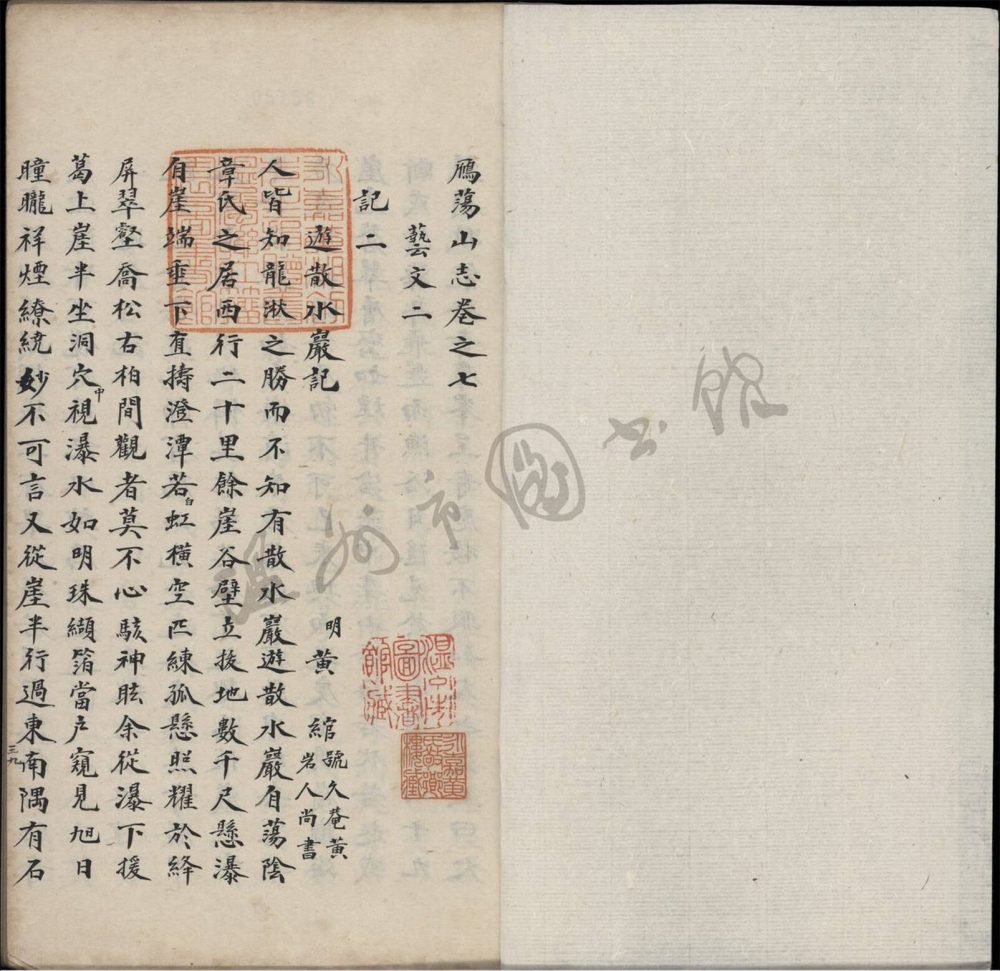 鴈蕩山志卷之七
藝文二
記二
遊散水巖記
明黃綰號久菴黃岩人尚書
人皆知龍湫之勝而不知有散水巖遊散水巖自蕩陰
章氏之居西行二十里餘崖谷壁立拔地數千尺懸瀑
自崖端垂下直擣澄潭若白虹橫空匹練孤懸照耀於絳
屏翠壑喬松古柏間觀者莫不心駭神眩余從瀑下援
葛上崖半坐洞穴中視瀑水如明珠纈箔當戶窺見旭日
曈曨祥煙繚繞妙不可言又從崖半行過東南隅有石
三九
溫州市圖書館
溫州市圖書館藏
永嘉黃氏敬鄉樓藏